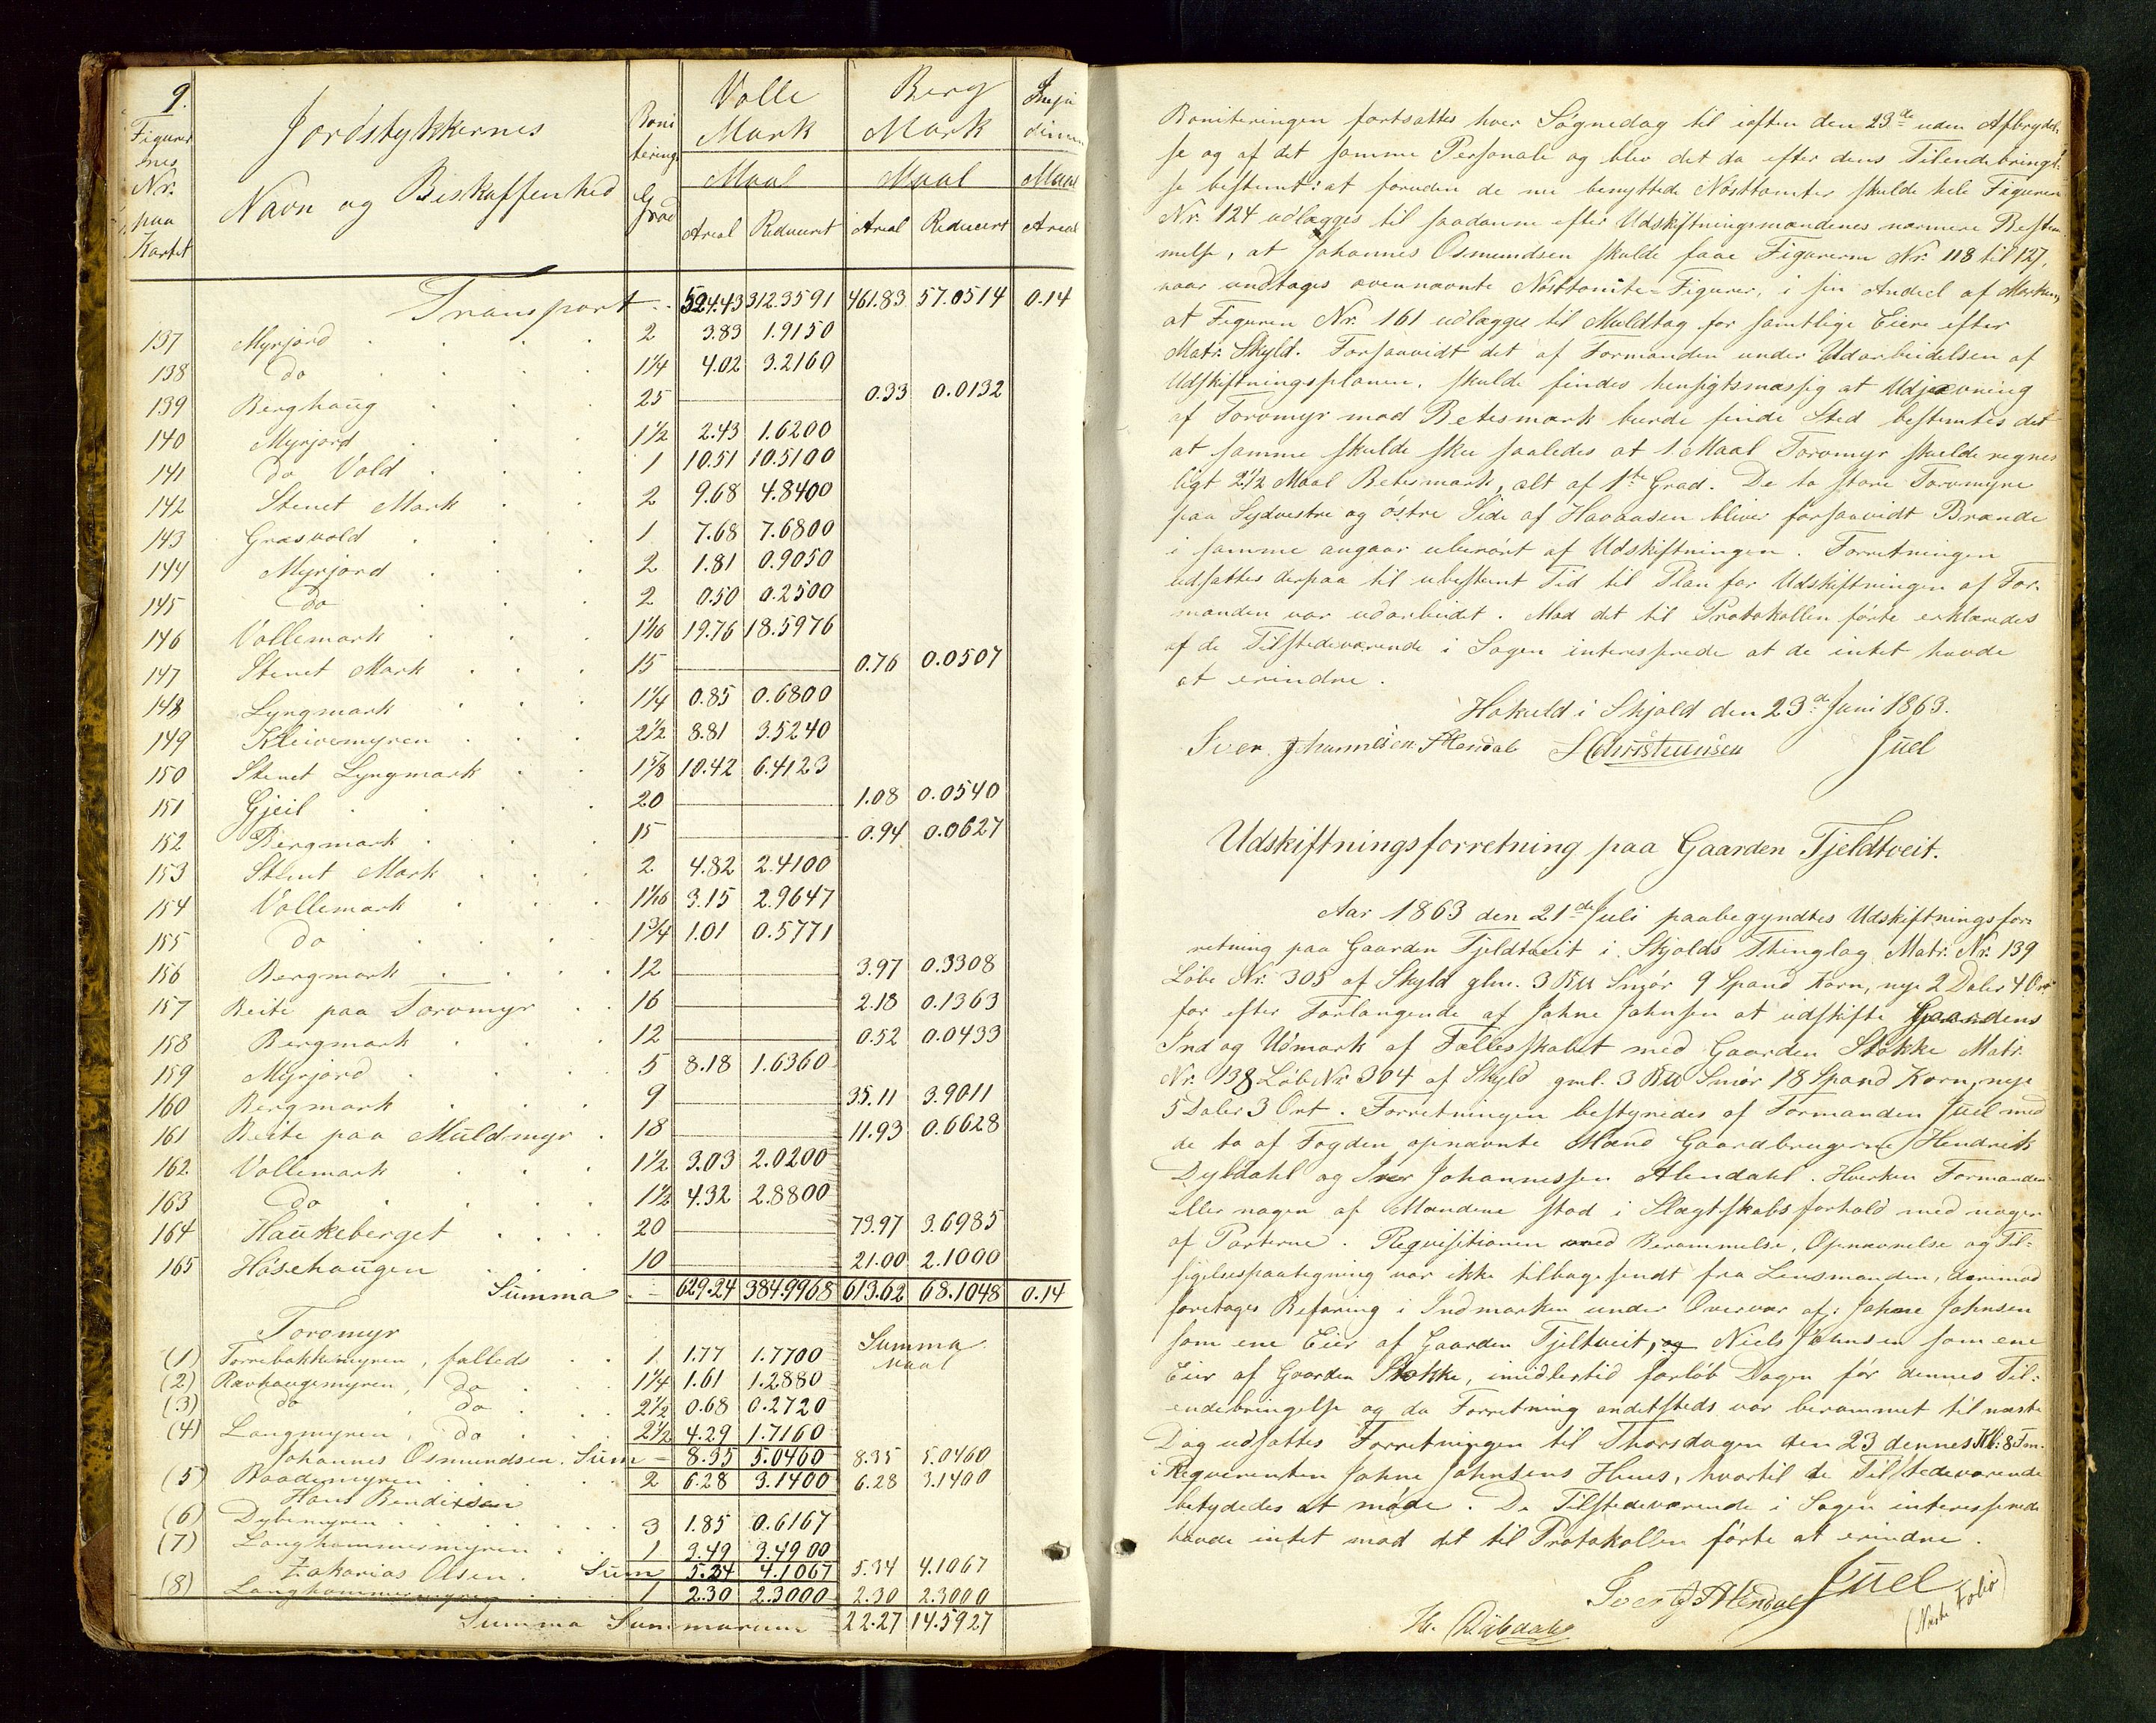 9.
Figurer
nes
Nr.
paa
Kartet
Jordstykkernes
Navn og Beskaffenhed
Boni
terings
Grad
Volle
Mark
Maal
Areal Reduceret
Berg
Mark
Maal
Areal Reduceret
Maal
Areal
Transport 524.43 312.3591 461.83 57.0514 0.14
137 Myrjord 2 3.83 1.9150
138 do 1¼ 4.02 3.2160
139 Berghaug 25 0.33 0.0132
140 Myrjord 1½ 2.43 1.6200
141 do Vold 1 10.51 10.5100
142 Stenet Mark 2 9.68 4.8400
143 Græsvold 1 7.68 7.6800
144 Myrjord 2 1.81 0.9050
145 do 2 0.50 0.2500
146 Vollemark 1 1/16 19.76 18.5976
147 Stenet Mark 15 0.76 0.0507
148 Lyngmark 1¼ 0.85 0.6800
149 Kleivemyren 2½ 8.81 3.5240
150 Stenet Lyngmark 1⅝ 10.42 6.4123
151 Gjeil 20 1.08 0.0540
152 Bergmark 15 0.94 0.0627
153 Stenet Mark 2 4.82 2.4100
154 Vollemark 1 1/16 3.15 2.9647
155 Do 1¾ 1.01 0.5771
156 Bergmark 12 3.97 0.3308
157 Beite paa Torvmyr 16 2.18 0.1363
158 Bergmark 12 0.52 0.0433
159 Myrjord 5 8.18 1.6360
160 Bergmark 9 35.11 3.9011
161 Beite paa Muldmyr 18 11.93 0.6628
162 Vollemark 1½ 3.03 2.0200
163 Do 1½ 4.32 2.8800
164 Haukeberget 20 73.97 3.6985
165 Hösehaugen 10 21.00 2.1000
Summa 629.24 384.9968 613.62 68.1048 0.14
Torvmyr Summa
Maal
(1) Torrebakkemyren, fælleds 1 1.77 1.7700
(2) Ravhaugemyren, do 1¼ 1.61 1.2880
(3) do do 2½ 0.68 0.2720
(4) Langmyren, do 2½ 4.29 1.7160
Johannes Osmundsen. Sum 8.35 5.0460 8.35 5.0460
(5) Baademyren 2 6.28 3.1400 6.28 3.1400
Hans Bendixsen
(6) Dybemyren 3 1.85 0.6167
(7) Langhammermyren 1 3.49 3.4900
Zakarias Olsen. Sum 5.34 4.1067 5.34 4.1067
(8) Langhammermyren 1 2.30 2.3000 2.30 2.3000
Summa Summarum 22.27 14.5927
Boniteringen fortsattes hver Søgnedag til iaften den 23de uden Afbrydel-
se og af det samme Personale og blev det da efter dens Tilendebringel-
se bestemt: at foruden de nu benyttede Nösttomter skulde hele Figuren
Nr. 124 udlægges til saadanne efter Udskiftningsmændenes nærmere Bestem-
melse, at Johannes Osmundsen skulde faae Figurerne Nr. 118 til 127,
naar undtages ovennævnte Nösttomte-Figurer, i sin Andeel af Marken,
at Figuren Nr. 161 udlægges til Muldtag for samtlige Eiere efter
Matr. Skyld. Forsaavidt det af Formanden under Udarbeidelsen af
Udskiftningsplanen, skulde findes hensigtsmæssig at Udjævning
af Torvmyr mod Betesmark burde finde Sted bestemtes det
at samme skulde skee saaledes at 1 Maal Torvmyr skulde regnes
ligt 2½ Maal Betesmark, alt af 1ste Grad. De to store Torvmyre
paa Sydvestre og østre Side af Havaasen bliver forsaavidt Brænde
i samme angaar uberørt af Udskiftningen. Forretningen
udsattes derpaa til ubestemt Tid til Plan for Udskiftningen af For-
manden var udarbeidet. Mod det til Protokollen førte erklæredes
af de Tilstedeværende i Sagen interesserede at de intet havde
at erindre.
Hakuld i Skjold den 23de Juni 1863.
Iver Johannesen Alendal HChristensen Juel
Udskiftningsforretning paa Gaarden Tjeldtveit.
Aar 1863 den 21de Juli paabegyndtes Udskiftningsfor-
retning paa Gaarden Tjeldtveit i Skjolds Thinglag Matr. Nr. 139
Löbe Nr. 305 af Skyld glm. 3 Smör 9 Spand Korn, nye 2 Daler 4 Ort
for efter Forlangende af Jahne Jahnsen at udskifte Gaardens
Ind og Udmark af Fællesskabet med Gaarden Stokke Matr.
Nr. 138 Löb Nr. 304 af Skyld gml. 3 Smör 18 Spand Korn, nye
5 Daler 3 Ort. Forretningen bestyredes af Formanden Juel med
de to af Fogden opnævnte Mænd Gaardbrugerne Hendrik
Dybdahl og Iver Johannessen Alendahl. Hverken Formanden
eller nogen af Mændene stod i Slægtskabsforhold med nogen
af Parterne. Reqvisitionen med Berammelse, Opnævnelse og Til-
sigelsespaategning var ikke tilbagesendt fra Lensmanden, derimod
foretoges Befaring i Indmarken under Overvær af: Jahne Jahnsen
som ene Eier af Gaarden Tjeltveit, og Niels Jahnsen som ene
Eier af Gaarden Stokke, imidlertid forløb Dagen før dennes Til-
endebringelse og da Forretning andetsteds var berammet til næste
Dag udsattes Forretningen til Thorsdagen den 23 dennes Kl: 8 Fm.
i Reqvirenten Jahne Jahnsens Huus, hvortil de Tilstedeværende
betydedes at møde. De Tilstedeværende i Sagen interesserede
havde intet mod det til Protokollen førte at erindre.
Iver J Alendal Juel
H. Dybdahl
(Næste Folio)